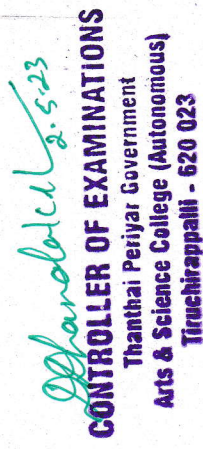 2.5.23
CONTROLLER OF EXAMINATIONS
Thanthai Periyar Government
Arts & Science College (Autonomous)
Tiruchirappalli - 620 023